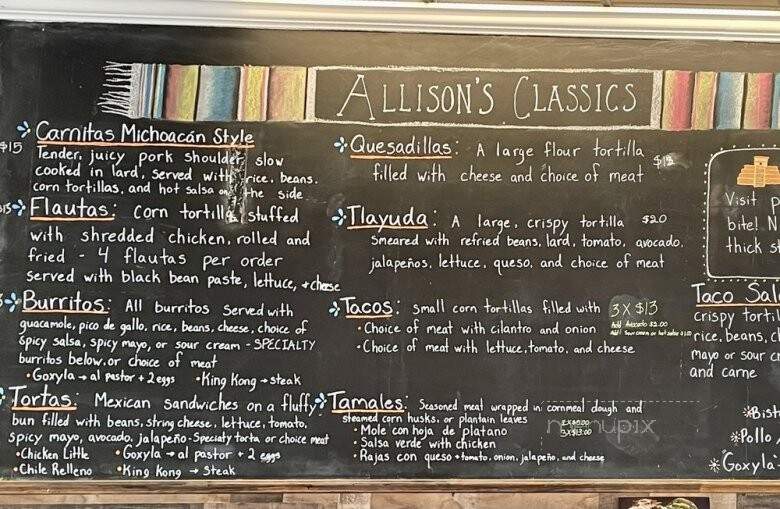 ALLISON'S CLASSICS
$15 Carnitas Michoacán Style
Tender, juicy pork shoulder slow
cooked in lard, served with rice, beans,
corn tortillas, and hot salsa on the side
Flautas: corn tortilla stuffed
with shredded chicken, rolled and
fried - 4 flautas per order
served with black bean paste, lettuce, + cheese
Burritos: All burritos served with
guacamole, pico de gallo, rice, beans, cheese, choice of
spicy salsa, spicy mayo, or sour cream - SPECIALTY
burritos below, or choice of meat
• Goxyla → al pastor + 2 eggs • King Kong → steak
Tortas: Mexican sandwiches on a fluffy
bun filled with beans, string cheese, lettuce, tomato,
spicy mayo, avocado, jalapeño - Specialty torta or choice meat
• Chicken Little • Goxyla → al pastor + 2 eggs
• Chile Relleno • King Kong → steak
Quesadillas: A large flour tortilla
filled with cheese and choice of meat
Tlayuda: A large, crispy tortilla $20
smeared with refried beans, lard, tomato, avocado,
jalapeños, lettuce, queso, and choice of meat
Tacos: small corn tortillas filled with 3 X $13
• Choice of meat with cilantro and onion Add Avocado $2.00
• Choice of meat with lettuce, tomato, and cheese
Tamales: Seasoned meat wrapped in cornmeal dough and
steamed corn husks, or plantain leaves
• Mole con hoja de platano
• Salsa verde with chicken
• Rajas con queso + tomato, onion, jalapeño, and cheese
Visit
bite!
thick
Taco
crispy
rice, beans,
mayo or sour
and carne
*Pollo
*Goxyla